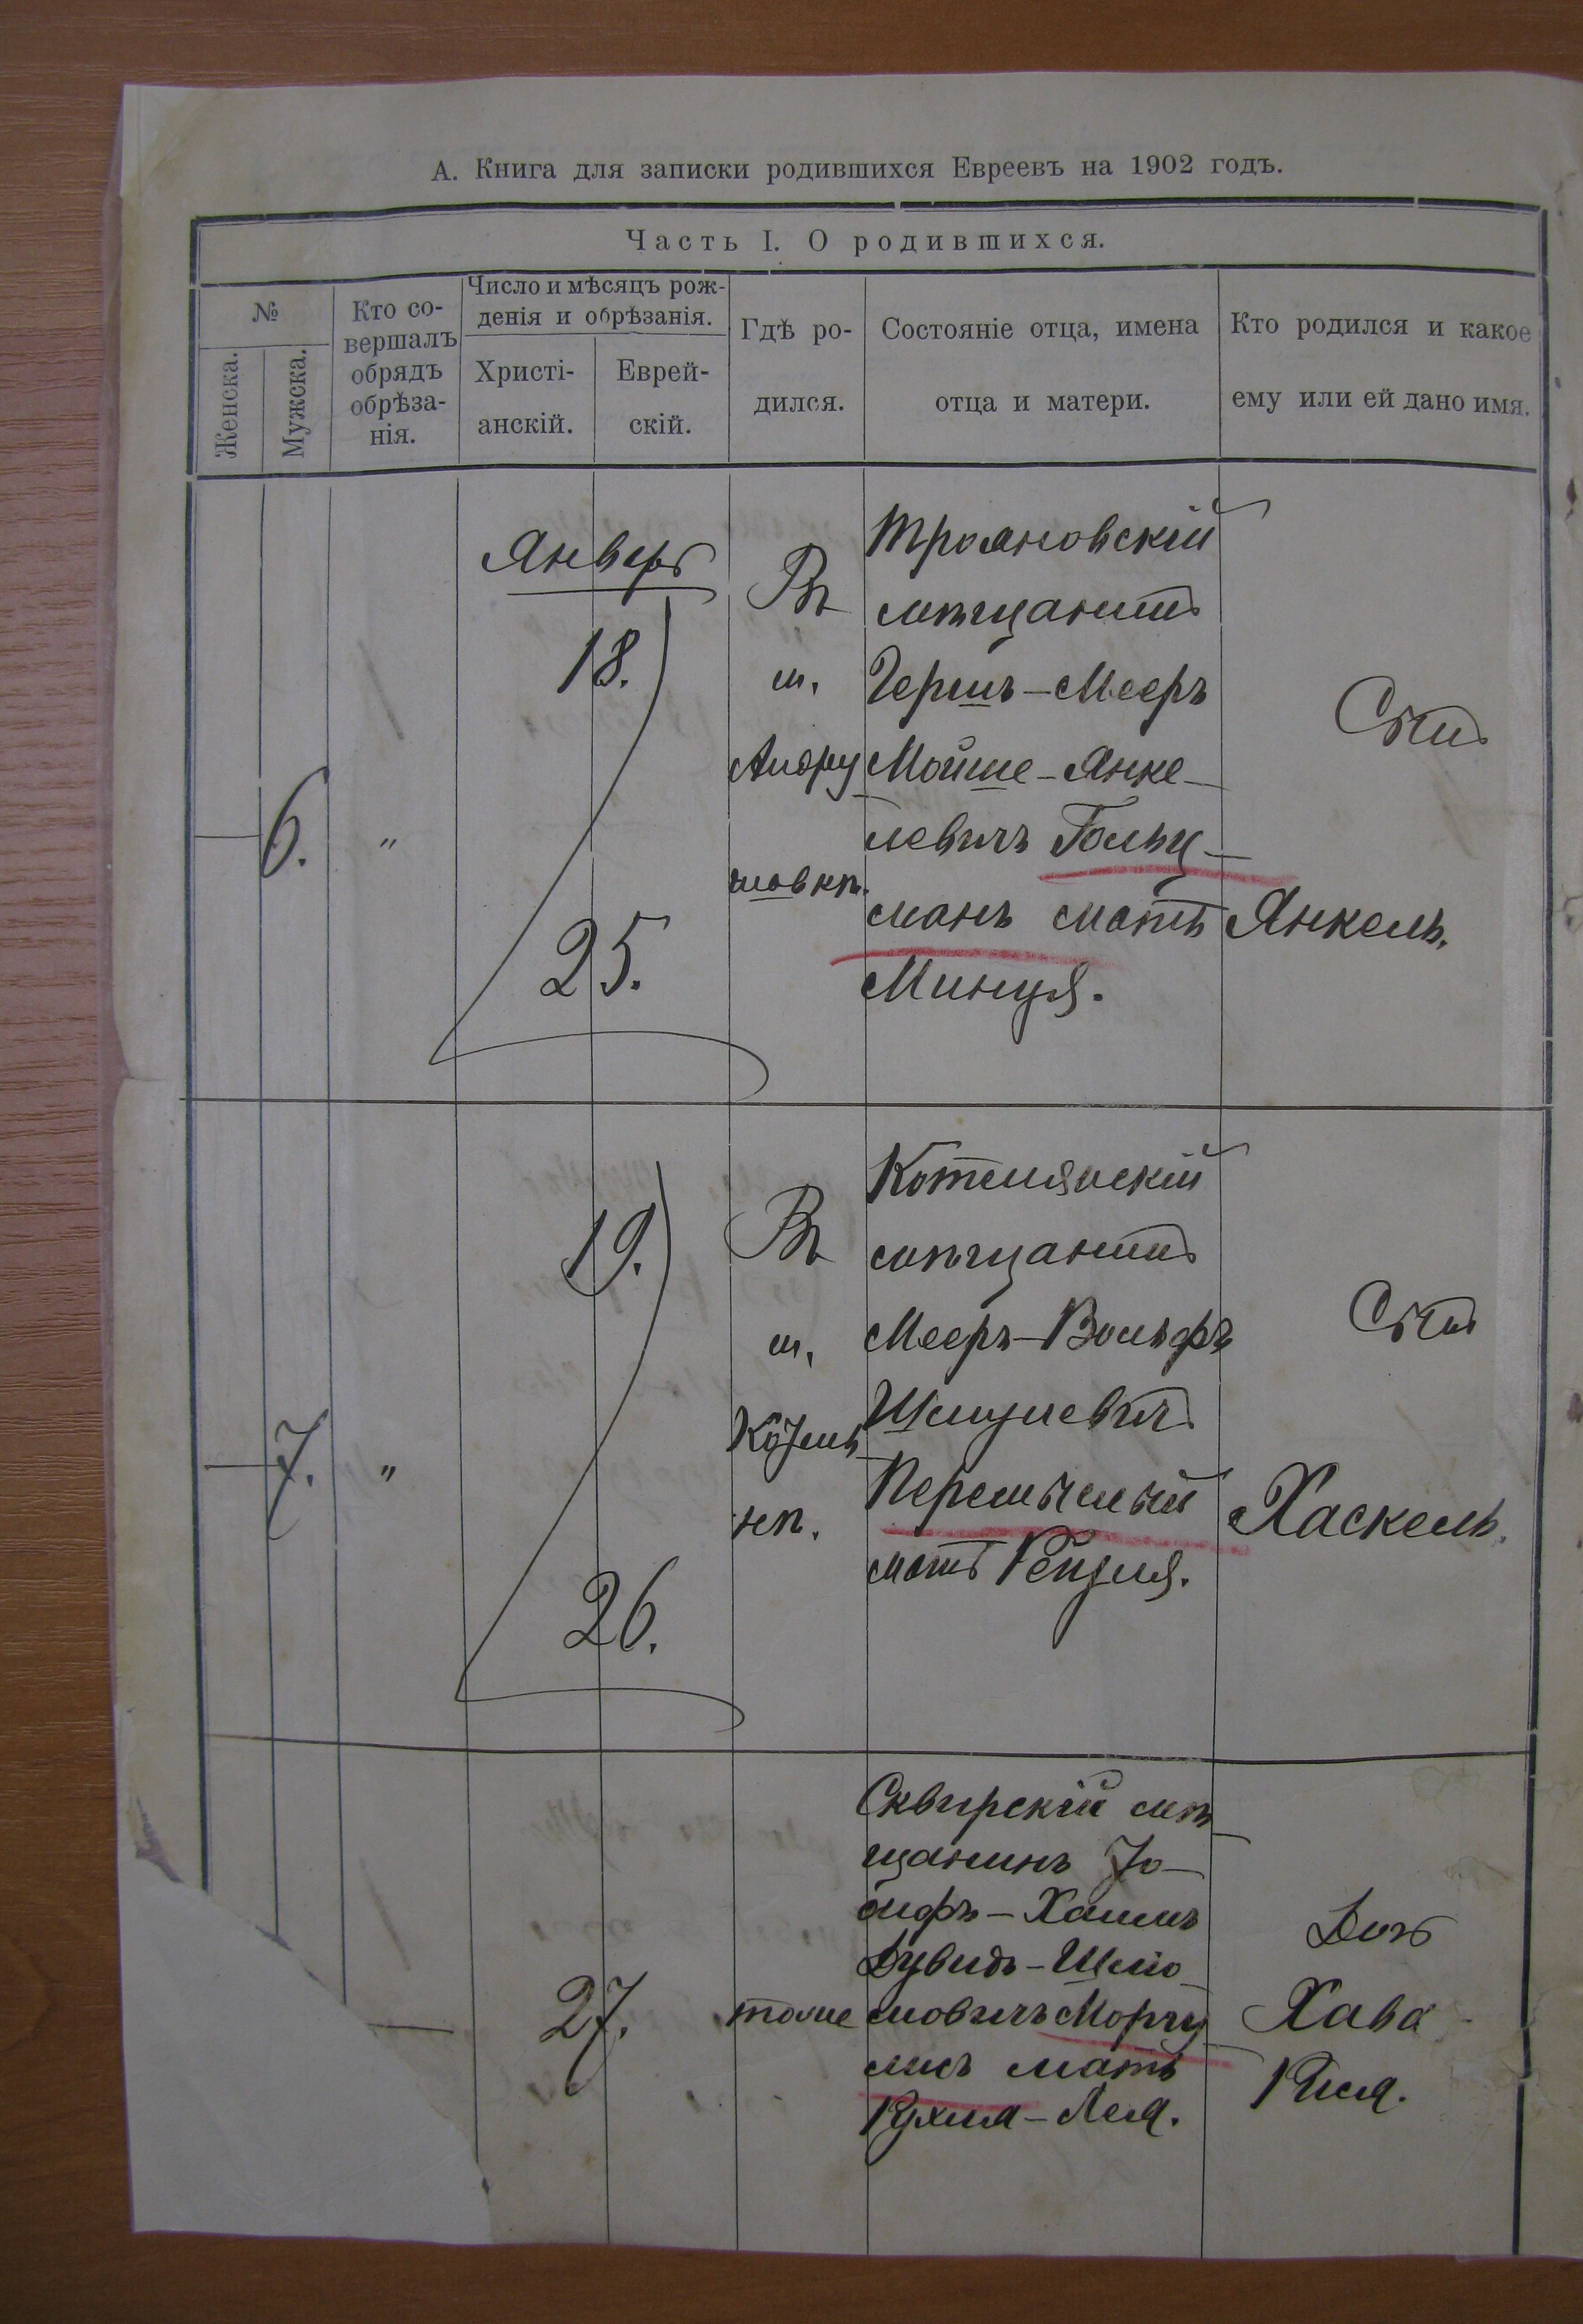 А. Книга для записки родившихся Евреевъ на 1902 годъ.
Часть I. О родившихся.
№
Женска.
Мужска.
Кто со-
вершалъ
обрядъ
обрѣза-
нія.
Число и мѣсяцъ рож-
денія и обрѣзанія.
Христі-
анскій.
Еврей-
скій.
Гдѣ ро-
дился.
Состояніе отца, имена
отца и матери.
Кто родился и какое
ему или ей дано имя.
6.
"
Январь
18.
25.
Въ
м.
Андру
шовкѣ.
Трояновскій
мѣщанинъ
Гершъ-Мееръ
Мойше-Янке-
левичъ Гольц-
манъ мать
Минця.
Сынъ
Янкель.
7.
"
19.
26.
Въ
м.
Котельнѣ.
Котельнскій
мѣщанинъ
Мееръ-Вольфъ
Шмулевичъ
мать Рейзля.
Сынъ
Хаскель.
27.
тоже
Сквирскій мѣ-
щанинъ Іо-
сифъ-Хаимъ
Дувидъ-Шліо-
мовичъ Моргу-
лисъ мать
Рухля-Лея.
Дочь
Хава